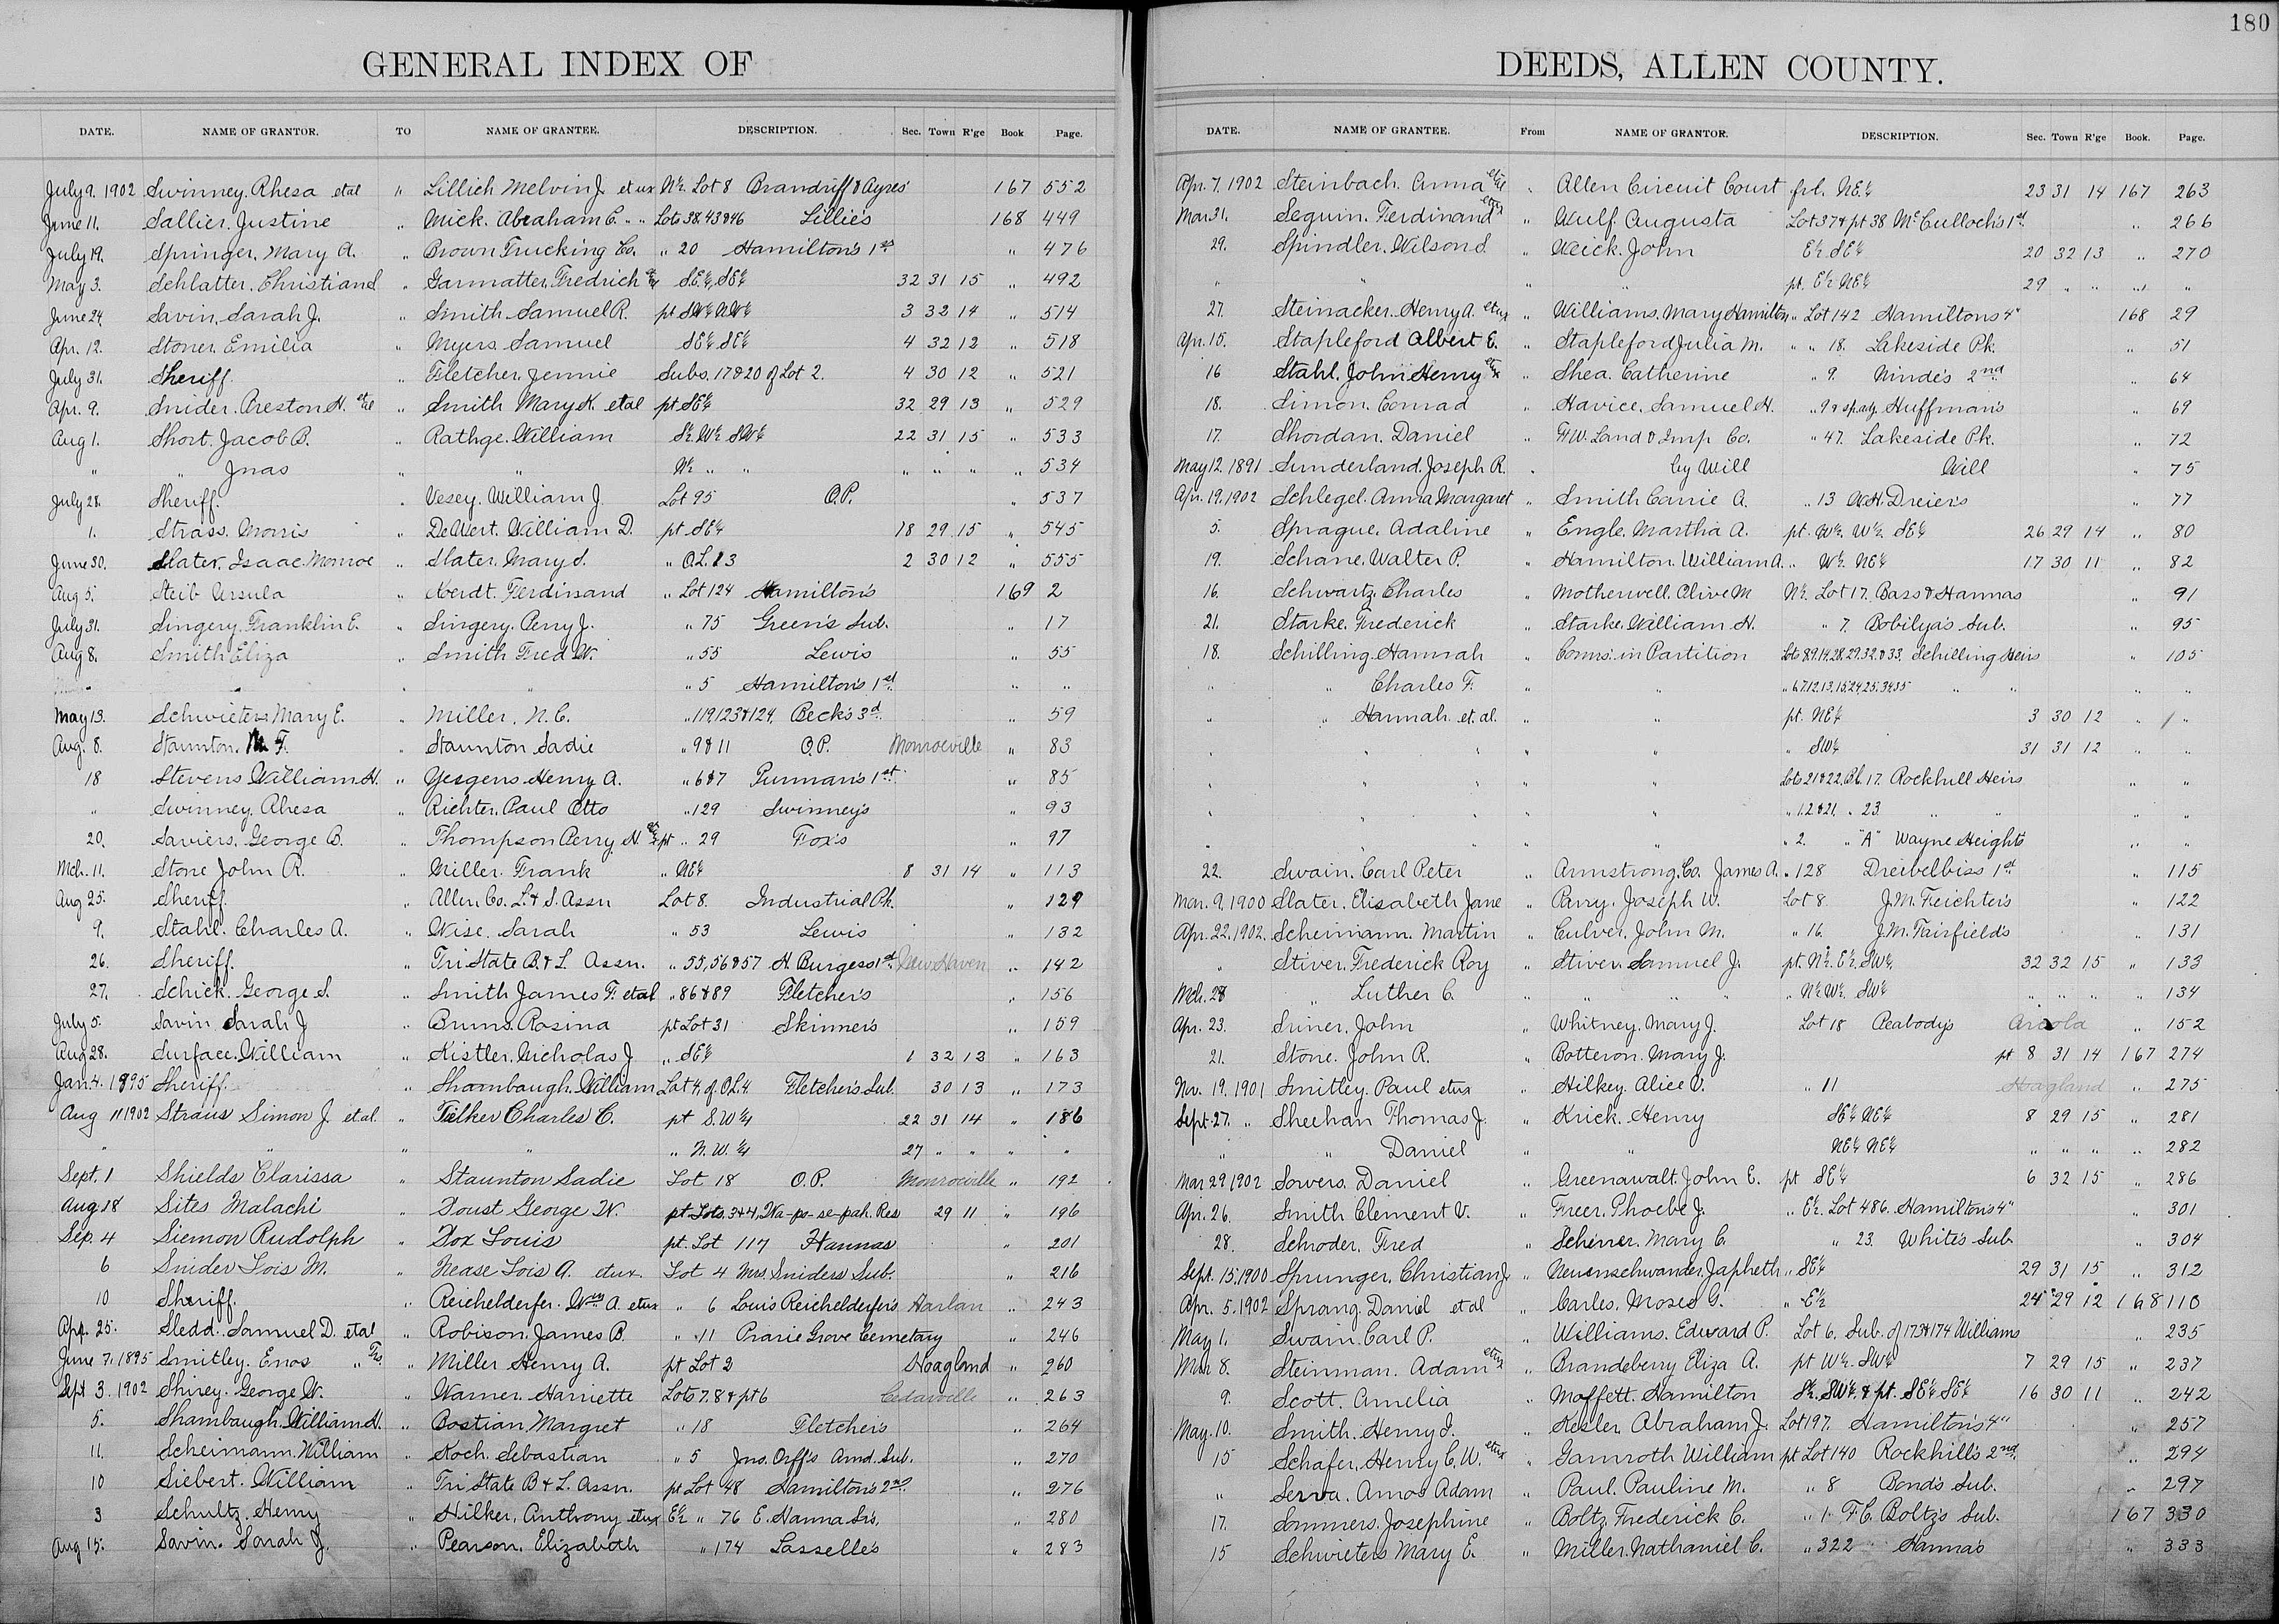 180
GENERAL INDEX OF
DATE. NAME OF GRANTOR. TO NAME OF GRANTEE. DESCRIPTION. Sec. Town R'ge Book Page.
July 9. 1902 Swinney. Rhesa etal " Lillich Melvin J. etux N½ Lot 8 Brandriff & Ayres' 167 552
June 11. Sallier. Justine " Mick. Abraham C. " " Lots 38.43&46 Lillie's 168 449
July 19. Springer. Mary A. " Brown Trucking Co. " 20 Hamilton's 1st " 476
May 3. Schlatter. Christian d " Garmatter. Fredrich SE¼ SE¼ 32 31 15 " 492
June 24. Savin. Sarah J. " Smith Samuel R. pt SW¼ NW¼ 3 32 14 " 514
Apr. 12. Stoner. Emilia " Myers. Samuel SE¼ SE¼ 4 32 12 " 518
July 31. Sheriff. " Fletcher. Jennie Subs. 17&20 of Lot 2. 4 30 12 " 521
Apr. 9. Snider. Preston H. et al " Smith Mary K. etal pt SE¼ 32 29 13 " 529
Aug 1. Short. Jacob B. " Rathge. William S½ W½ SW¼ 22 31 15 " 533
" " Jnas " " N½ " " " " " " 534
July 28. Sheriff. " Vesey. William J. Lot 95 O.P. " 537
1. Strass. Morris " DeWert. William D. pt SE¼ 18 29 15 " 545
June 30. Slater. Isaac Monroe " Slater. Mary S. " O.L. 13 2 30 12 " 555
Aug 5. Steib Ursula " Koerdt. Ferdinand " Lot 124 Hamilton's 169 2
July 31. Singery. Franklin E. " Singery. Perry J. " 75 Green's Sub. " 17
Aug 8. Smith Eliza " Smith Fred W. " 55 Lewis " 55
" " " 5 Hamilton's 1st " "
May 13. Schwieters Mary E. " Miller. N.C. " 119,123&124 Beck's 3d " 59
Aug. 8. Staunton. M. F. " Staunton Sadie " 9&11 O.P. Monroeville " 83
18 Stevens William H. " Yergens Henry A. " 6&7 Purman's 1st " 85
" Swinney. Rhesa " Richter. Paul Otto " 129 Swinney's " 93
20. Saviers. George B. " Thompson Perry H. pt " 29 Fox's " 97
Mch. 11. Stone John R. " Miller. Frank " NE¼ 8 31 14 " 113
Aug 25. Sheriff. " Allen. Co. L. & S. Assn Lot 8. Industrial Pk. " 129
9. Stahl. Charles A. " Wise. Sarah " 53 Lewis " 132
26. Sheriff. " Tri State B. & L. Assn. " 55,56&57 H. Burgess 1st New Haven " 142
27. Schick. George S. " Smith James F. etal " 86&89 Fletcher's " 156
July 5. Savin Sarah J " Bruns. Rosina pt Lot 31 Skinner's " 159
Aug 28. Surface. William " Kistler. Nicholas J " SE¼ 1 32 13 " 163
Jan. 4. 1895 Sheriff. " Shambaugh. William Lot 4. of O.L. 4. Fletcher's Sub. 30 13 " 173
Aug 11 1902 Straus Simon J. et al. " Felker Charles C. pt S.W¼ 22 31 14 " 186
" " " " " N.W.¼ 27 " " " "
Sept. 1 Shields Clarissa " Staunton Sadie Lot 18 O.P. Monroeville " 192
Aug 18 Sites Malachi " Doust George W. pt Lots. 3&4, Wa-po-se-pah. Res 29 11 " 196
Sep. 4 Siemon Rudolph " Fox Louis pt. Lot 117 Hannas " 201
6 Snider Lois M. " Nease Lois A. etux Lot 4 Mrs. Sniders Sub. " 216
10 Sheriff. " Reichelderfer. Wm A. etux " 6 Louis Reichelderfer's Harlan " 243
Apr. 25. Sledd. Samuel D. etal " Robison. James B. " 11 Prarie Grove Cemetary " 246
June 7. 1895 Smitley. Enos " Trs. " Miller Henry A. pt Lot 2 Hoagland " 260
Sept 3. 1902 Shirey. George W. " Warner. Harriette Lots 7.8&pt 6 Cedarville " 263
5. Shambaugh. William H. " Bostian Margret " 18 Fletcher's " 264
11. Scheimann. William " Koch. Sebastian " 5 Jno. Orff's Amd. Sub. " 270
10 Siebert. William " Tri State B & L. Assn. pt Lot 48 Hamilton's 2nd " 276
3 Schultz. Henry " Hilker. Anthony etux E½ " 76 E. Hanna Sr's. " 280
Aug 15. Savin. Sarah J. " Pearson. Elizabeth " 174 Lasselle's " 283
DEEDS, ALLEN COUNTY.
DATE. NAME OF GRANTEE. From NAME OF GRANTOR. DESCRIPTION. Sec. Town R'ge Book. Page.
Apr. 7. 1902 Steinbach. Anna et al " Allen Circuit Court frl. NE¼ 23 31 14 167 263
Mar 31. Seguin. Ferdinand etux " Wulf Augusta Lot 37 & pt 38 McCulloch's 1st " 266
29. Spindler. Wilson S. " Weick. John E½ SE¼ 20 32 13 " 270
" " " " pt. E½ NE¼ 29 " " " "
27. Steinacker. Henry A. etux " Williams. Mary Hamilton " Lot 142 Hamiltons 4" 168 29
Apr. 15. Stapleford Albert E. " Stapleford Julia M. " " 18. Lakeside Pk. " 51
16 Stahl. John Henry etux " Shea. Catherine " 9. Ninde's 2nd " 64
18. Simon. Conrad " Havice. Samuel H. " 9 & sp. adj. Huffman's " 69
17. Shordan. Daniel " Ft W. Land & Imp Co. " 47. Lakeside Pk. " 72
May 12. 1891 Sunderland. Joseph R. " by Will Will " 75
Apr. 19. 1902 Schlegel. Anna Margaret " Smith Carrie A. " 13 W.H. Dreier's " 77
5. Sprague. Adaline " Engle. Martha A. pt. W½ W½ SE¼ 26 29 14 " 80
19. Schane. Walter P. " Hamilton. William A. " W½ NE¼ 17 30 11 " 82
16. Schwartz. Charles " Motherwell. Olive M N½ Lot 17. Bass & Hannas " 91
21. Starke. Frederick " Starke. William H. " 7. Bobilya's Sub. " 95
18. Schilling. Hannah " Comrs. in Partition Lots 8.9.14.28.29.32.&33. Schilling Heirs " 105
" " Charles F. " " " 6.7.12.13.15.24.25.34.35 " " " "
" " Hannah et. al. " " pt. NE¼ 3 30 12 " "
" " " " " " SW¼ 31 31 12 " "
" " " " " Lots 21&22. Bl. 17. Rockhill Heirs " "
" " " " " " 1.2&21. " 23. " " " "
" " " " " " 2. " "A" Wayne Heights " "
22. Swain. Carl Peter " Armstrong. Co. James A. " 128 Dreibelbiss 1st " 115
Mar. 9. 1900 Slater. Elisabeth Jane " Parry. Joseph W. Lot 8. J.M. Feichter's " 122
Apr. 22. 1902. Scheimann. Martin " Culver. John M. " 16. J.M. Fairfield's " 131
" Stiver. Frederick Roy " Stiver. Samuel J. pt. N½ E½ SW¼ 32 32 15 " 133
Mch. 28 " Luther C. " " " " " N½ W½ SW¼ " " " " 134
Apr. 23. Sriner. John " Whitney. Mary J. Lot 18 Peabody's Arcola " 152
21. Stone. John R. " Botteron. Mary J. pt 8 31 14 167 274
Nov. 19. 1901 Smitley. Paul etux " Hilkey. Alice V. " 11 Hoagland " 275
Sept. 27. " Sheehan Thomas J. " Krick. Henry SE¼ NE¼ 8 29 15 " 281
" " Daniel " " NE¼ NE¼ " " " " 282
Mar 29 1902 Sowers. Daniel " Greenawalt. John E. pt SE¼ 6 32 15 " 286
Apr. 26. Smith Clement V. " Freer. Phoebe J. " E½ Lot 486. Hamilton's 4" " 301
28. Schroder. Fred " Scherrer. Mary C. " 23. White's Sub. " 304
Sept. 15. 1900 Sprunger. Christian J. " Neuenschwander. Japheth " SE¼ 29 31 15 " 312
Apr. 5. 1902 Sprang. Daniel et al " Carles. Moses G. " E½ 24 29 12 168 110
May 1. Swain. Carl P. " Williams. Edward P. Lot 6. Sub. of 173&174 Williams " 235
Mar 8. Steinman. Adam etux " Brandeberry Eliza A. pt W½ SW¼ 7 29 15 " 237
9. Scott. Amelia " Moffett. Hamilton S½ SW¼ & pt. SE¼ SE¼ 16 30 11 " 242
May. 10. Smith. Henry I. " Kesler. Abraham J. Lot 197. Hamilton's 4" " 257
15 Schafer. Henry C. W. etux " Gamroth William pt Lot 140 Rockhill's 2nd " 294
" Serva. Amos Adam " Paul. Pauline M. " 8 Bond's Sub. " 297
17. Sommers. Josephine " Boltz. Frederick C. " 1. F.C. Boltz's Sub. 167 330
15 Schwieters Mary E. " Miller. Nathaniel C. " 322 Hanna's " 333